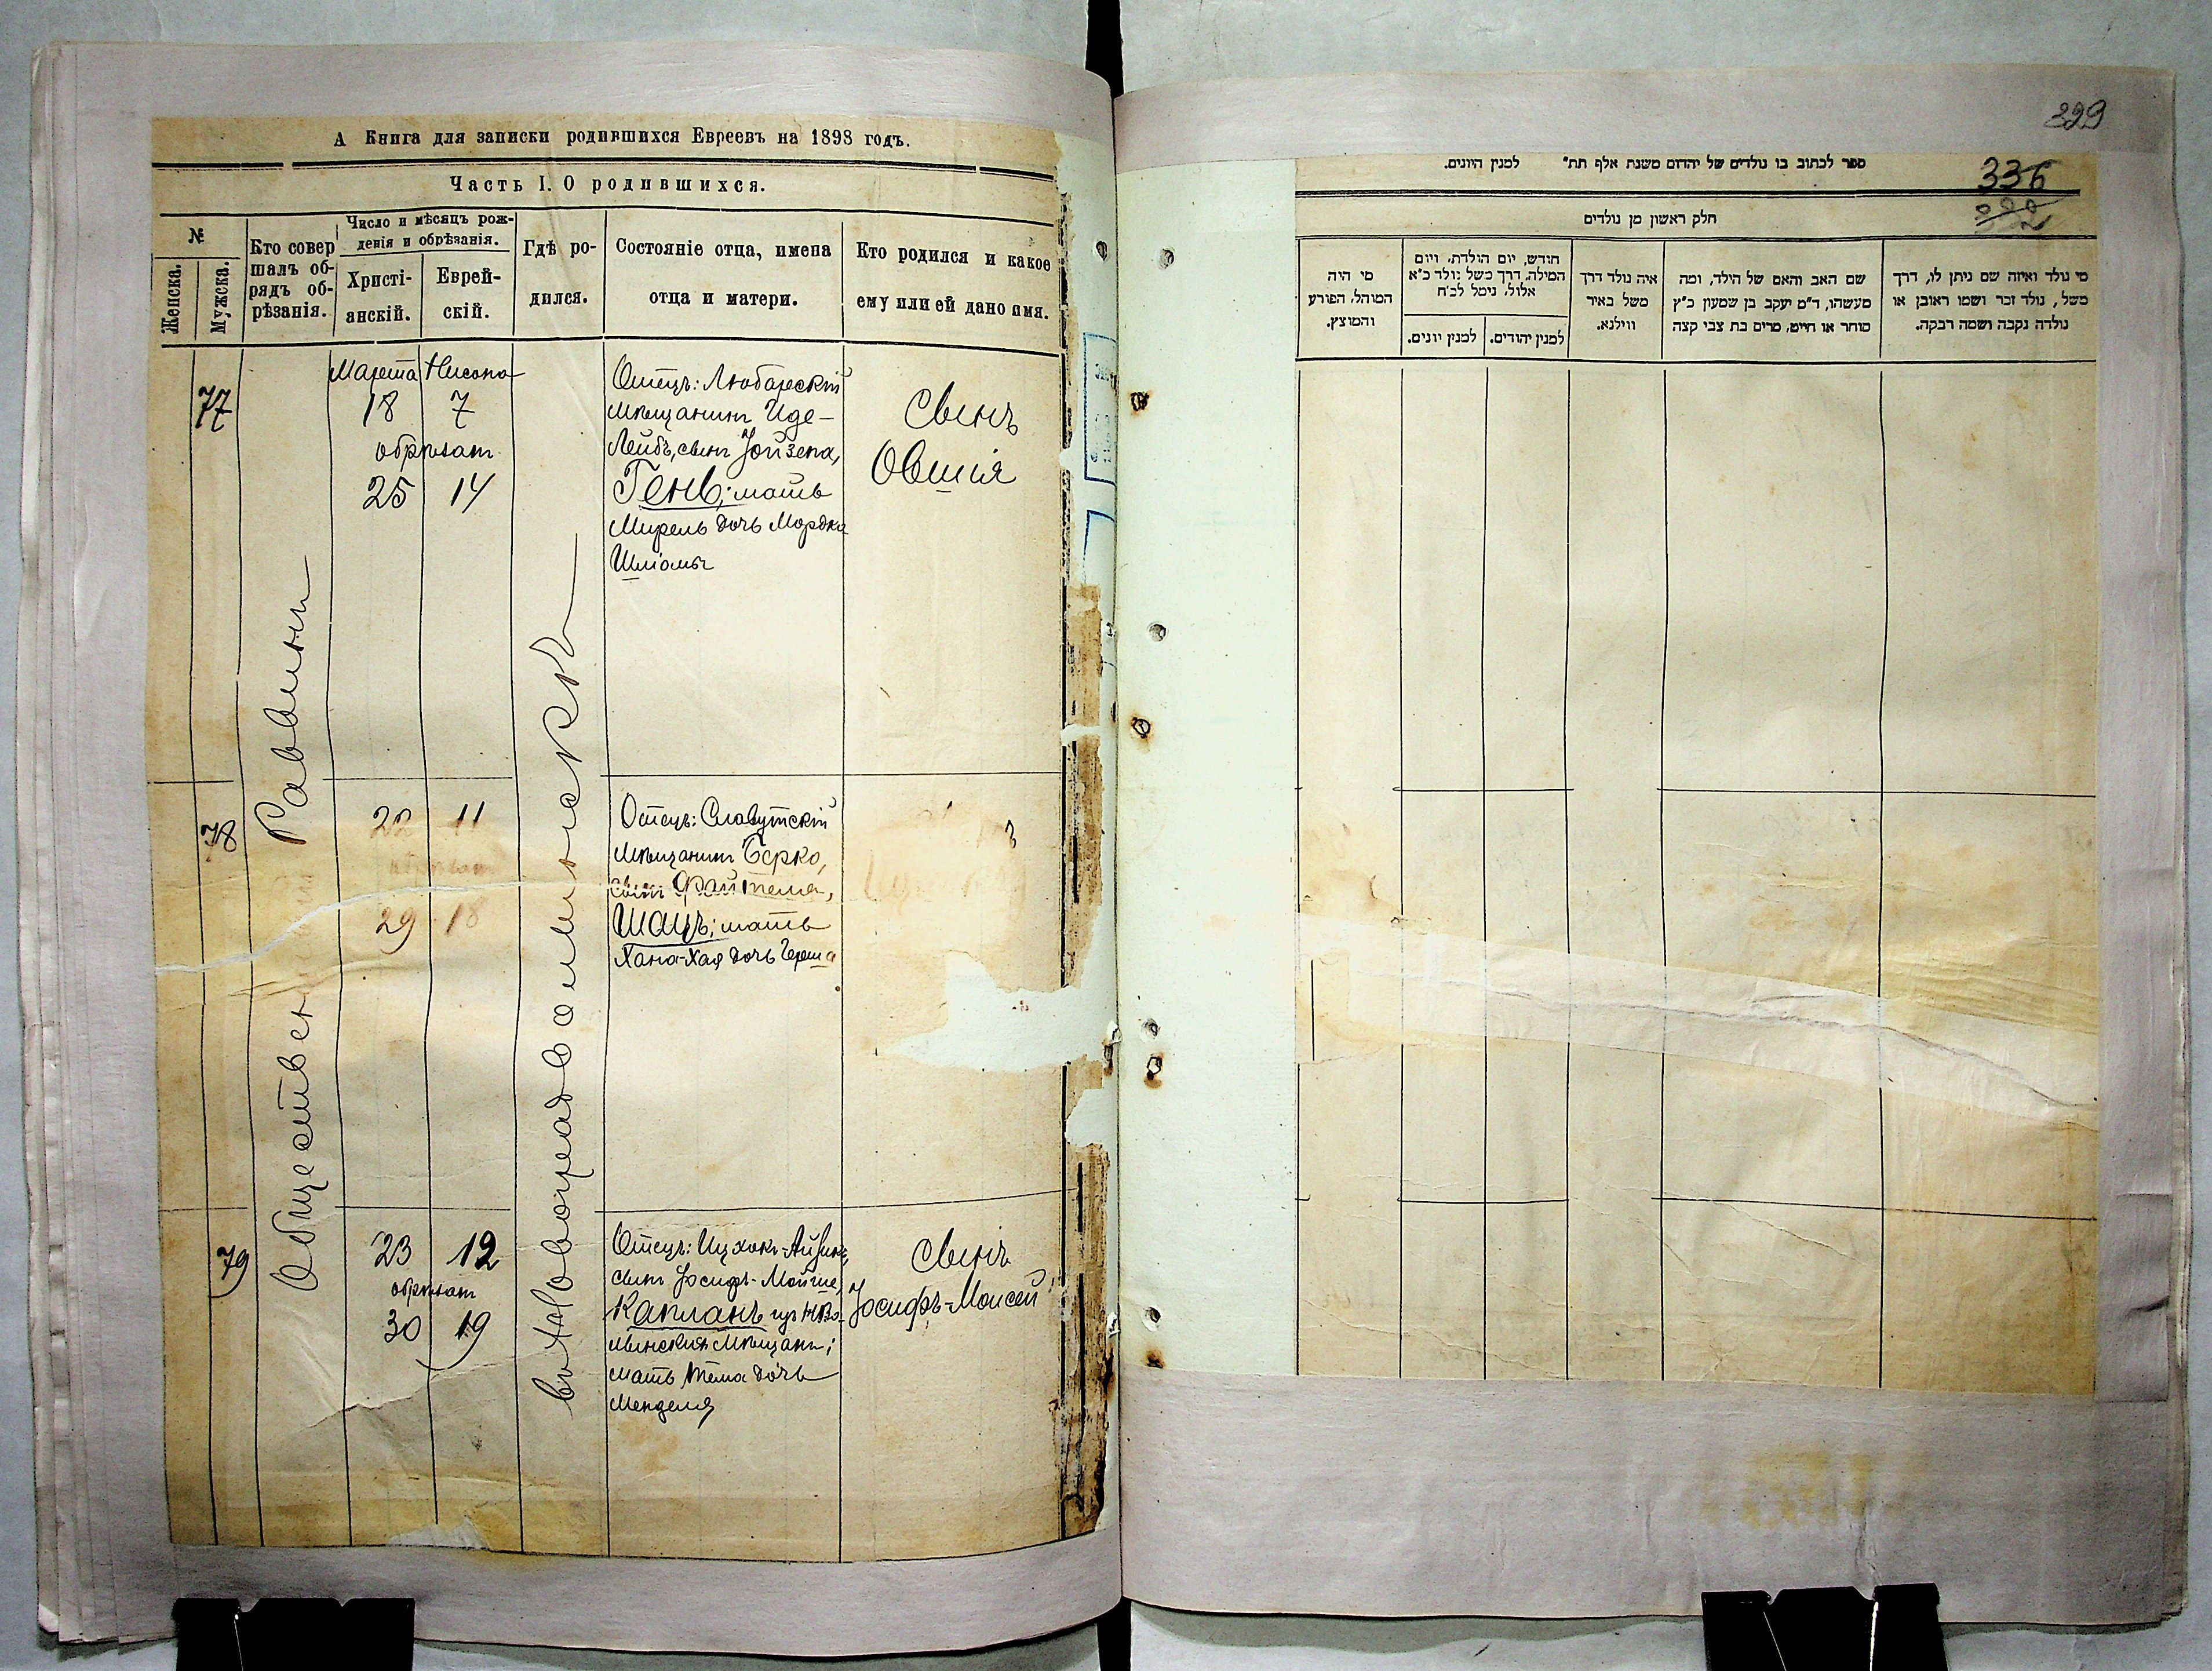 А Книга для записки родившихся Евреевъ на 1898 годъ.
Часть I. О родившихся.
№
Женска.
Мужска.
Кто совер
шалъ об-
рядъ об-
рѣзанія.
Число и мѣсяцъ рож-
денія и обрѣзанія.
Христі-
анскій.
Еврей-
скій.
Гдѣ ро-
дился.
Состояніе отца, имена
отца и матери.
Кто родился и какое
ему или ей дано имя.
Общественн Раввинъ
въ Новоградволынскѣ
77
Марта Нисона
18 7
обрѣзат
25 14
Отецъ: Любарскій
мѣщанинъ Иде-
Лейбъ, сынъ Іойзепа,
Генъ; мать
Мирель дочь Мордка
Шліомы
сынъ
Овшія
78
22 11
обрѣзат
29 18
Отецъ: Славутскій
мѣщанинъ Берко,
сынъ Файтеля,
Шацъ; мать
Хана-Хая дочь Герша
79
23 12
обрѣзат
30 19
Отецъ: Ицхокъ-Айзикъ,
сынъ Іосифъ-Мойше,
Капланъ изъ НВо-
лынскихъ мѣщанъ;
мать Тема дочь
Менделя
сынъ
Іосифъ-Моисей
329
336
ספר לכתוב בו נולדים של יהדום משנת אלף תת״ למנין היונים.
חלק ראשון מן נולדים
מי היה
המוהל, הפורע
והמוצץ.
חודש, יום הולדת, ויום
המילה, דרך משל נולד כ״א
אלול, נימל לכ״ח
למנין יונים.
למנין יהודים.
איה נולד דרך
משל באיר
ווילנא.
שם האב והאם של הילד, ומה
מעשהו, ד״מ יעקב בן שמעון כ״ץ
סוחר או חייט, מרים בת צבי קצה
מי נולד ואיזה שם ניתן לו, דרך
משל, נולד זכר ושמו ראובן או
נולדה נקבה ושמה רבקה.